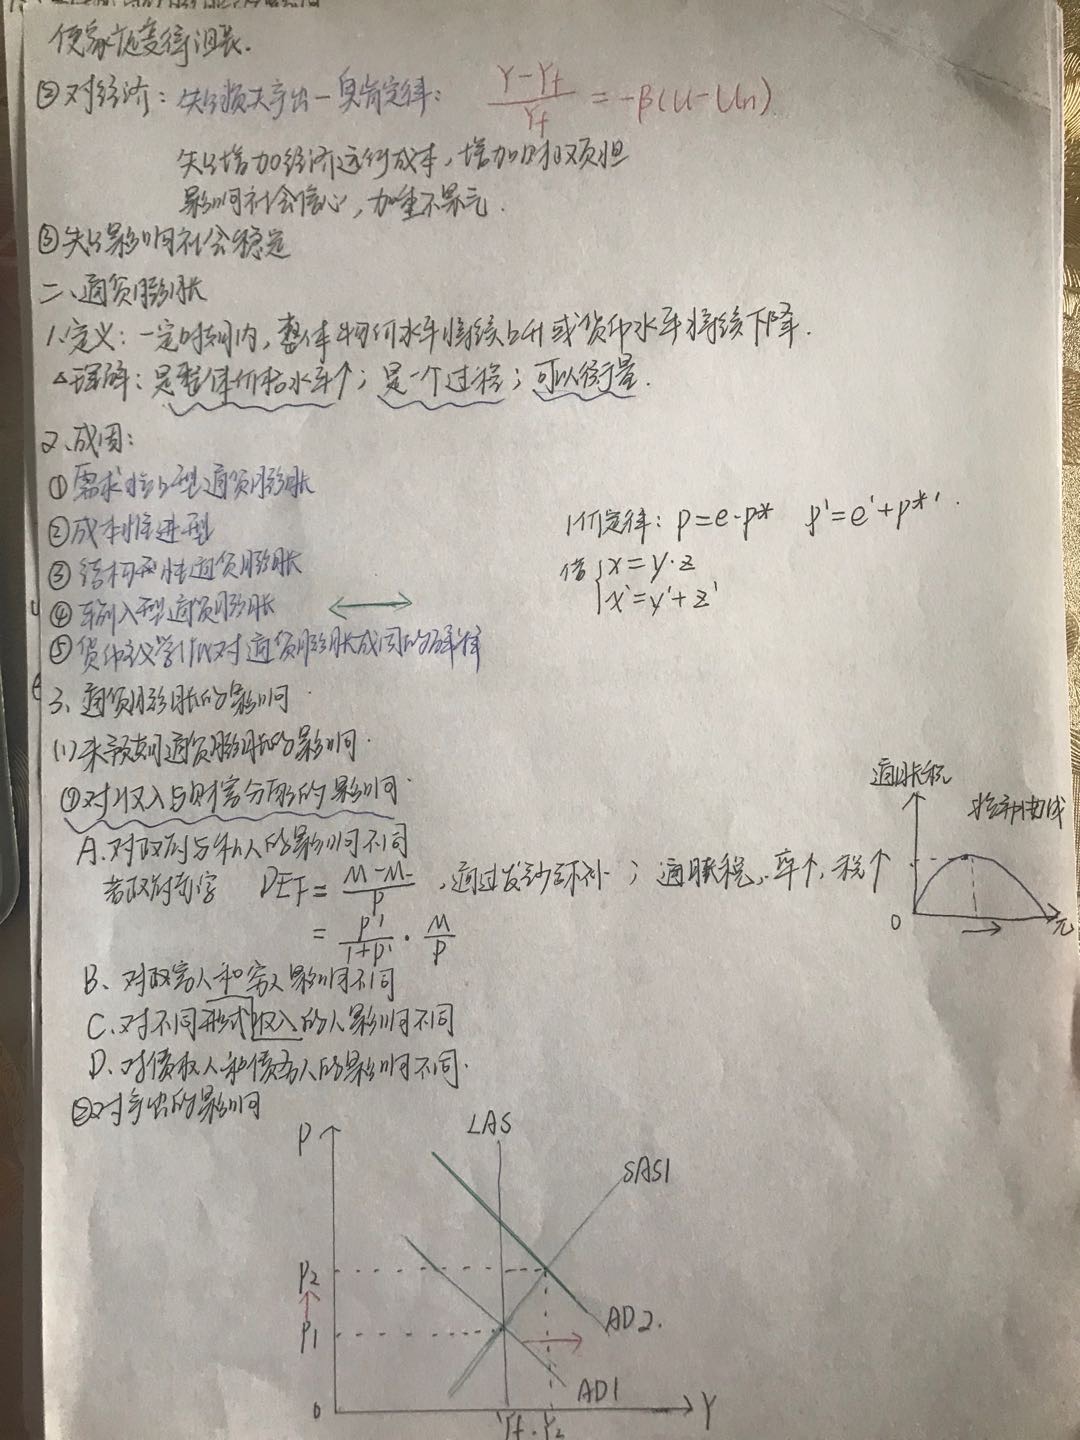 使家庭变得沮丧.
②对经济: 失业损失产出—奥肯定律: (Y-Yf)/Yf = -β(u-un)
失业增加经济运行成本,增加财政负担
影响社会信心,加重不景气.
③失业影响社会稳定
二、通货膨胀
1.定义: 一定时期内,整体物价水平持续上升或货币水平持续下降.
△理解: 是整体价格水平↑; 是一个过程; 可以衡量.
2、成因:
①需求拉上型通货膨胀
②成本推进型
③结构型性通货膨胀
④输入型通货膨胀 ⟷
⑤货币主义学派对通货膨胀成因的解释
1价定律: p=e·p* p'=e'+p*'.
若 { x=y·z
x'=y'+z'
3、通货膨胀的影响.
(1)未预期通货膨胀的影响.
①对收入与财富分配的影响.
A.对政府与私人的影响不同
若政府赤字 DEF = (M-M-)/P ,通过发钞弥补; 通胀税,率↑,税↑
= p'/(1+p') · M/P
通胀税
拉弗曲线
0 π
B、对政富人和穷人影响不同
C.对不同形式收入的人影响不同
D.对债权人和债务人的影响不同.
②对产出的影响
P
LAS
SAS1
P2
P1
AD2.
AD1
0 Yf. Y2 Y